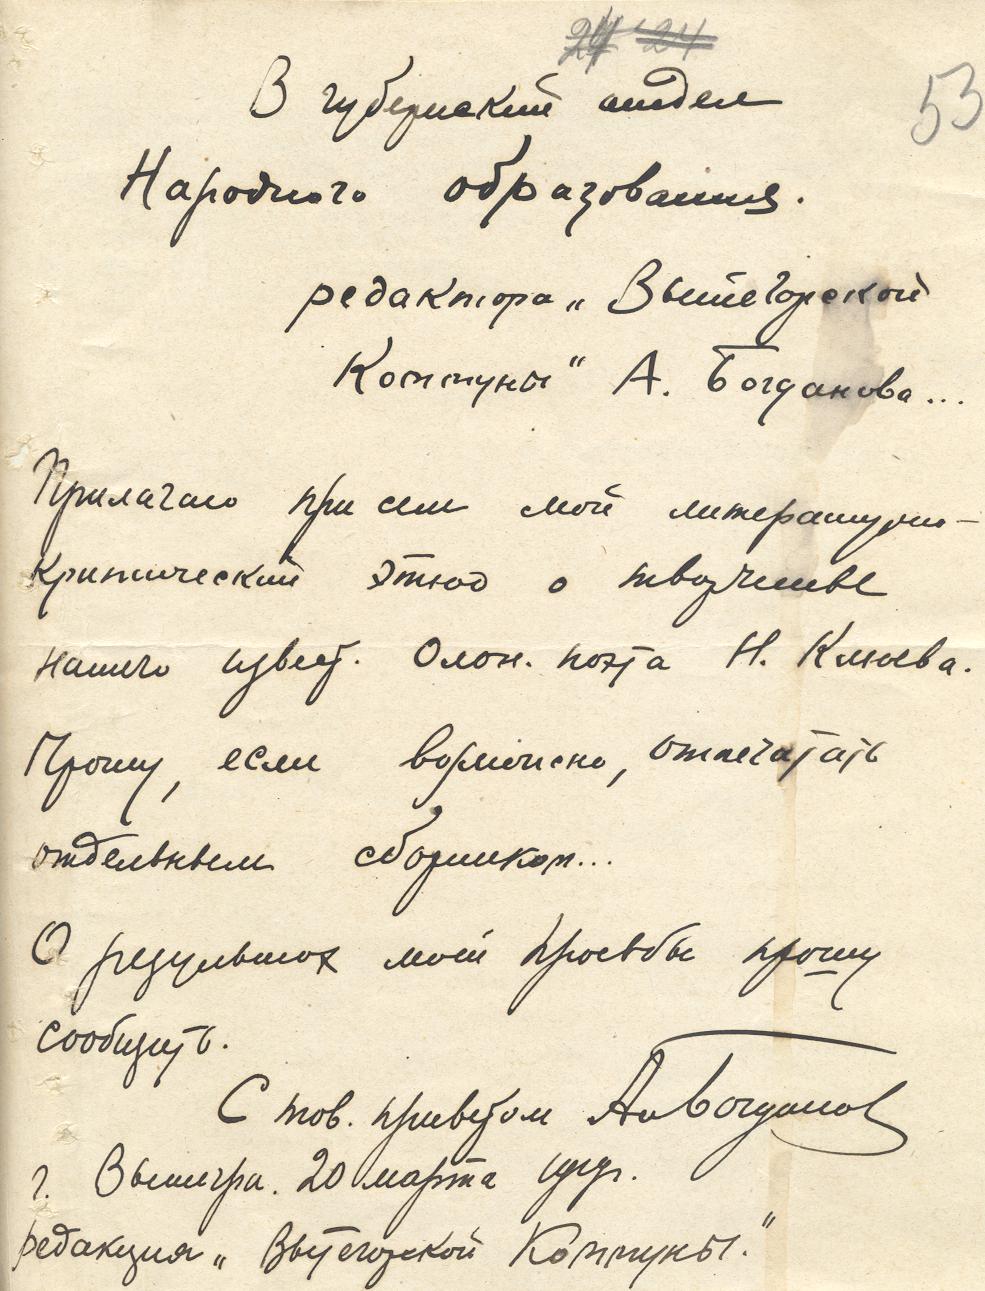 24 24
53
В губернский отдел
Народного образования.
редактора „Вытегорской
Коммуны" А. Богданова...
Прилагаю при сем мой литературно-
критический этюд о творчестве
нашего извест. Олон. поэта Н. Клюева.
Прошу, если возможно, отпечатать
отдельным сборником...
О результатах моей просьбы прошу
сообщить.
С тов. приветом Ал Богданов
г. Вытегра. 20 марта 1919г.
редакция „Вытегорской Коммуны."